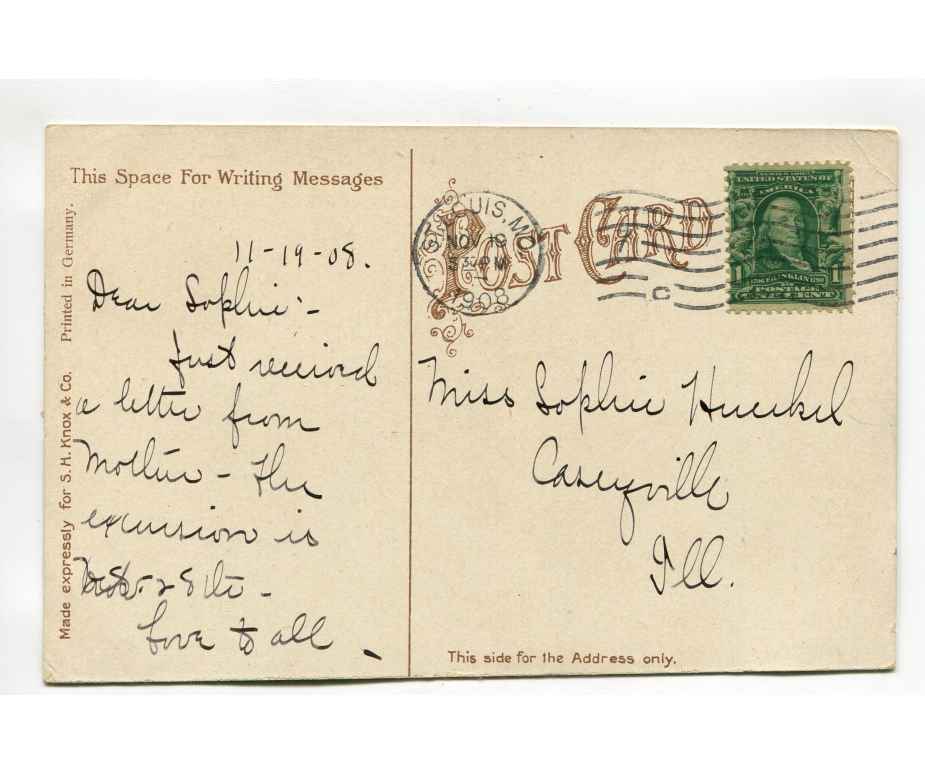 This Space For Writing Messages
Printed in Germany.
Made expressly for S. H. Knox & Co.
11-19-08.
Dear Sophie:-
Just received
a letter from
Mother - The
excursion is
28th -
Love to all
POST CARD
ST. LOUIS, MO
NOV 19
PM
1908
C
UNITED STATES OF
AMERICA
1 FRANKLIN 1
POSTAGE
ONE CENT
Miss Sophie Huenkel
Caseyville
Ill.
This side for the Address only.